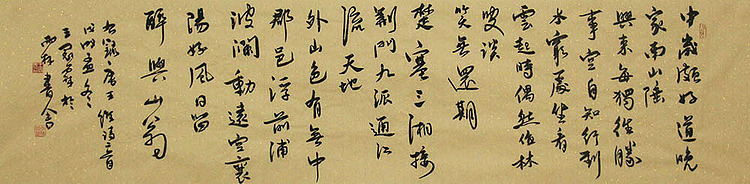 中歲頗好道晚
家南山陲
興來每獨往勝
事空自知行到
水窮處坐看
雲起時偶然值林
叟談
笑無還期
楚塞三湘接
荊門九派通江
流天地
外山色有無中
郡邑浮前浦
波瀾動遠空襄
陽好風日留
醉與山翁
右錄唐王維詩二首
戊戌孟冬
王於